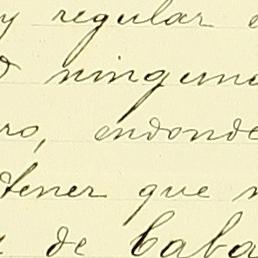 y regular
ningun
ro, endonde
tener que
de Caba